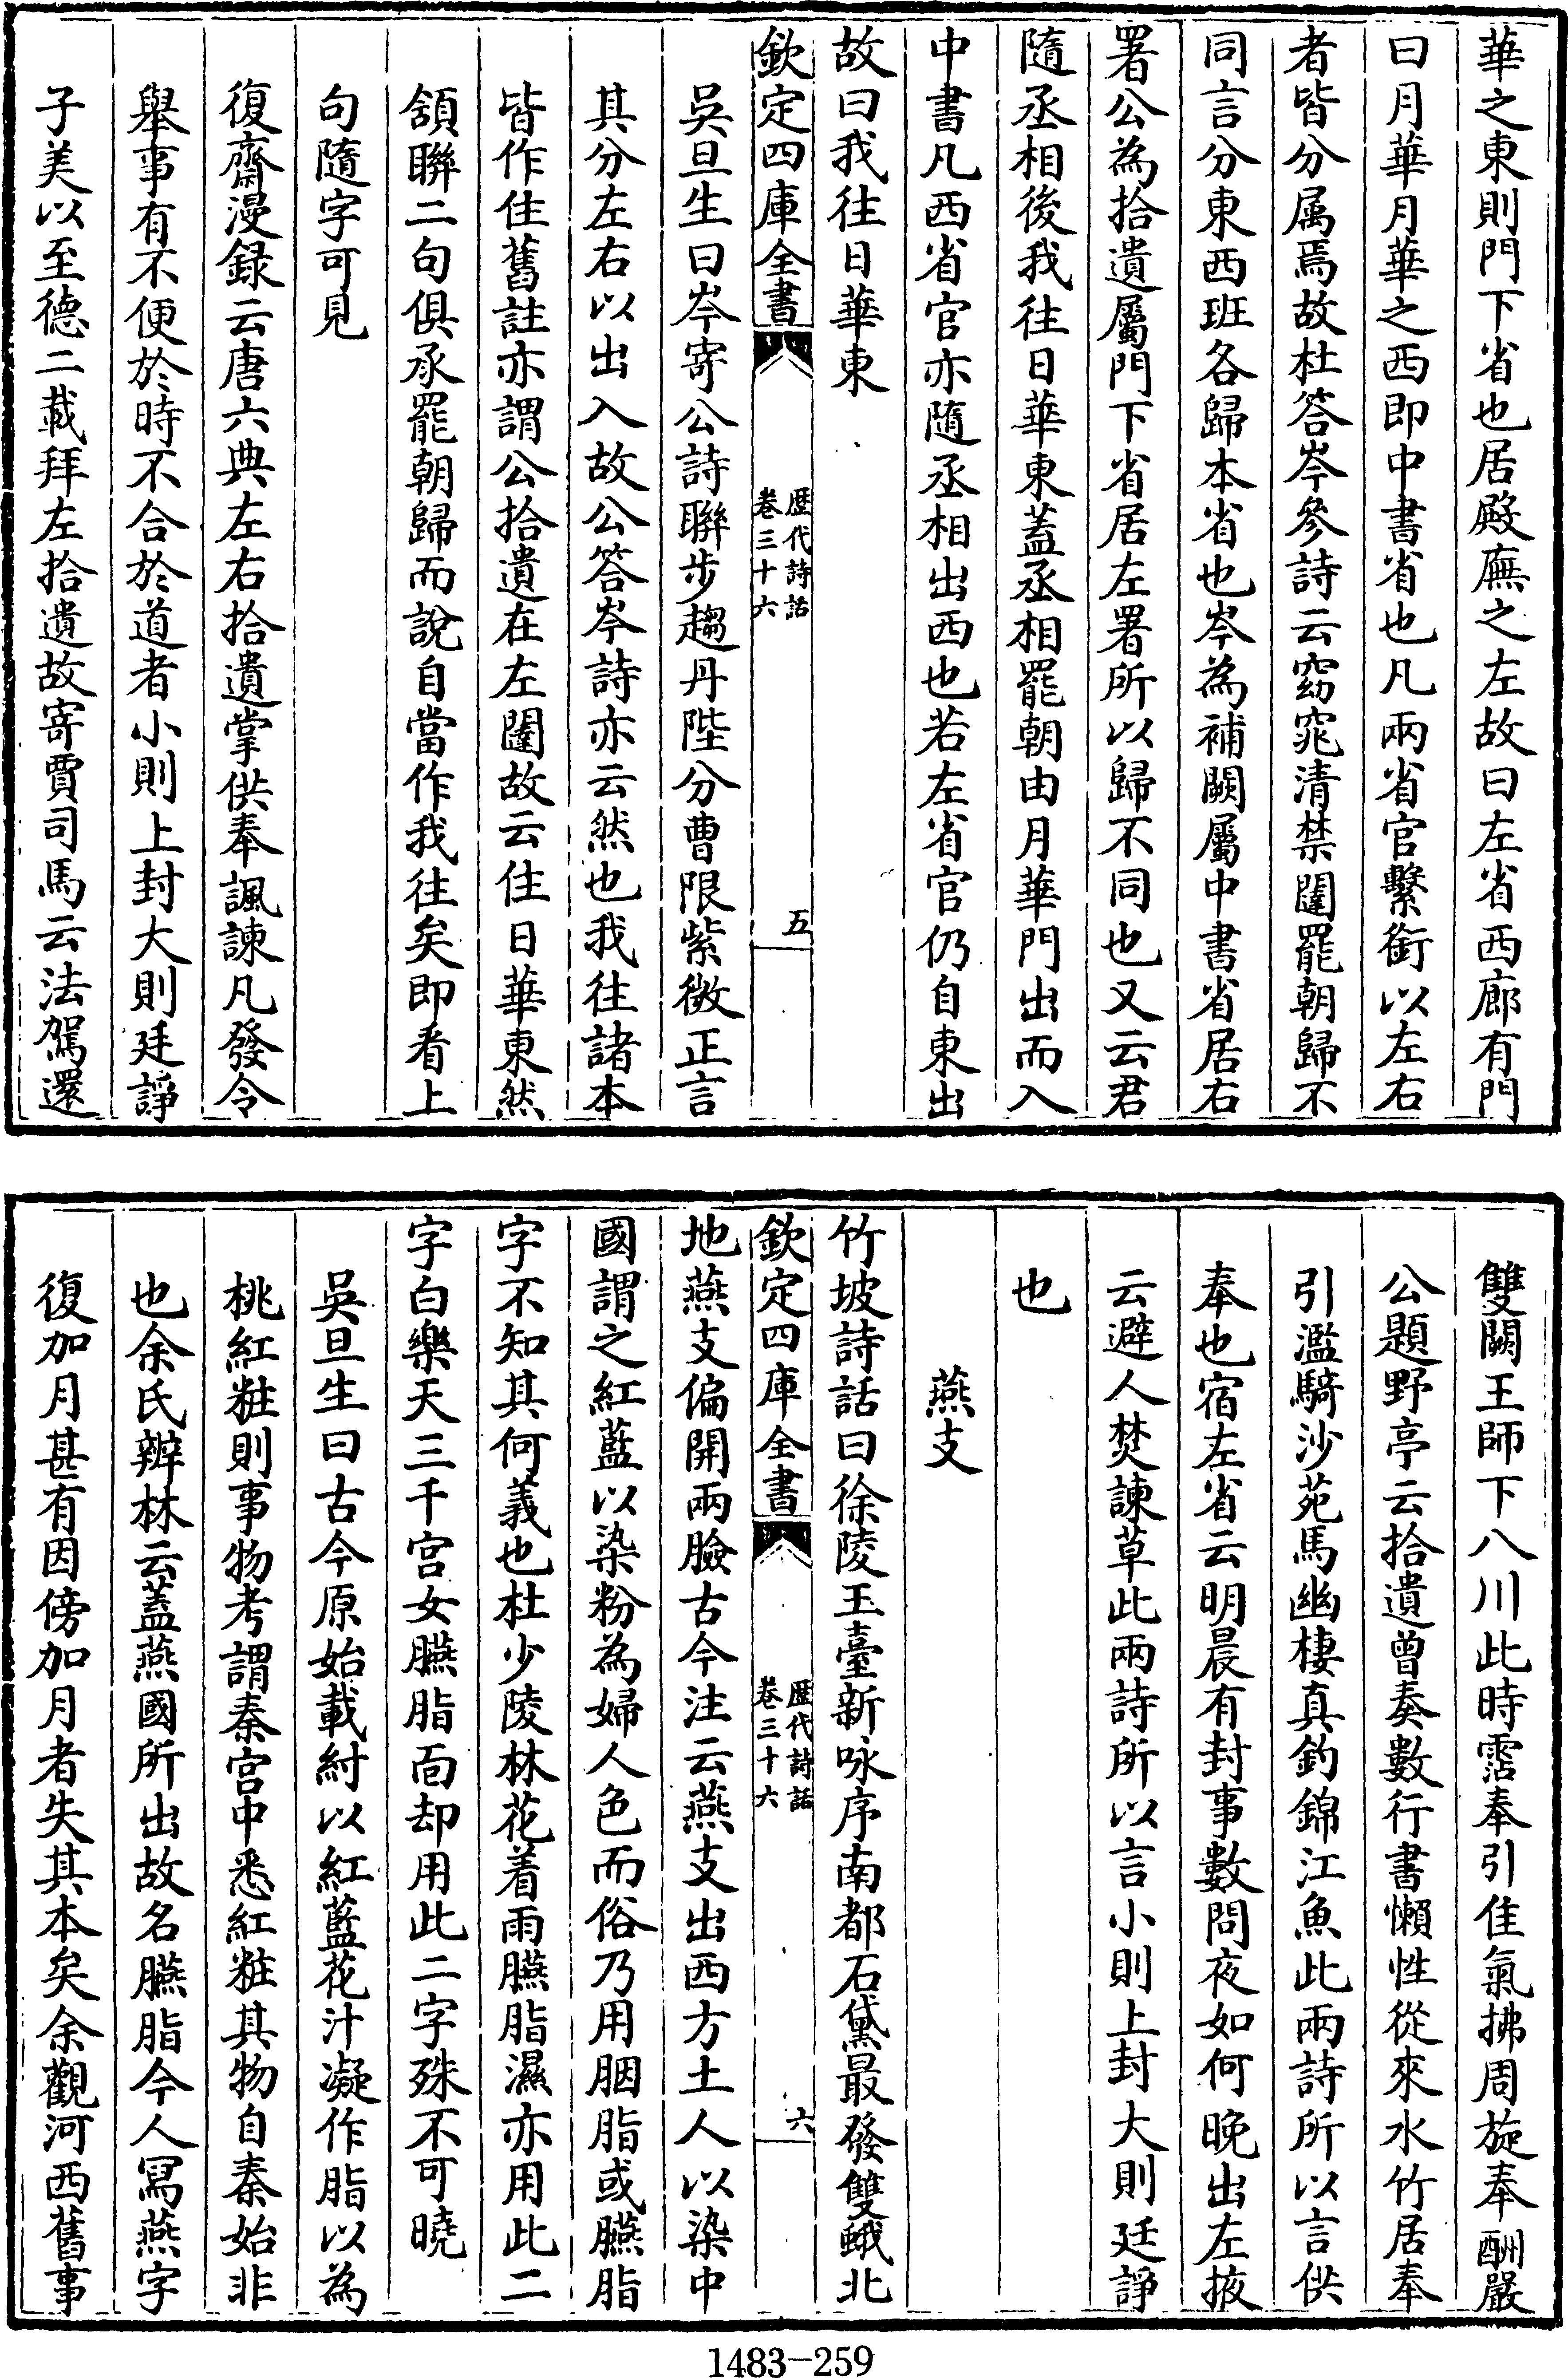 華之東則門下省也居殿廡之左故曰左省西廊有門
曰月華月華之西即中書省也凡兩省官繫銜以左右
者皆分属焉故杜答岑參詩云窈窕清禁闥罷朝歸不
同言分東西班各歸本省也岑為補闕屬中書省居右
署公為拾遺屬門下省居左署所以歸不同也又云君
隨丞相後我往日華東蓋丞相罷朝由月華門出而入
中書凡西省官亦隨丞相出西也若左省官仍自東出
故曰我往日華東
欽定四庫全書
歴代詩話
卷三十六
五
吳旦生曰岑寄公詩聯步趨丹陛分曹限紫微正言
其分左右以出入故公答岑詩亦云然也我往諸本
皆作住舊註亦謂公拾遺在左闥故云住日華東然
頷聯二句俱承罷朝歸而說自當作我往矣即看上
句隨字可見
復齋漫録云唐六典左右拾遺掌供奉諷諫凡發令
舉事有不便於時不合於道者小則上封大則廷諍
子美以至德二載拜左拾遺故寄賈司馬云法駕還
雙闕王師下八川此時霑奉引佳氣拂周旋奉酬嚴
公題野亭云拾遺曾奏數行書懶性從來水竹居奉
引濫騎沙苑馬幽棲真釣錦江魚此兩詩所以言供
奉也宿左省云明晨有封事數問夜如何晚出左掖
云避人焚諫草此兩詩所以言小則上封大則廷諍
也
燕支
竹坡詩話曰徐陵玉臺新咏序南都石黛最發雙蛾北
欽定四庫全書
歴代詩話
卷三十六
六
地燕支偏開兩臉古今注云燕支出西方土人以染中
國謂之紅藍以染粉為婦人色而俗乃用胭脂或臙脂
字不知其何義也杜少陵林花着雨臙脂濕亦用此二
字白樂天三千宫女臙脂靣却用此二字殊不可曉
吳旦生曰古今原始載紂以紅藍花汁凝作脂以為
桃紅粧則事物考謂秦宫中悉紅粧其物自秦始非
也余氏辨林云蓋燕國所出故名臙脂今人冩燕字
復加月甚有因傍加月者失其本矣余觀河西舊事
1483-259